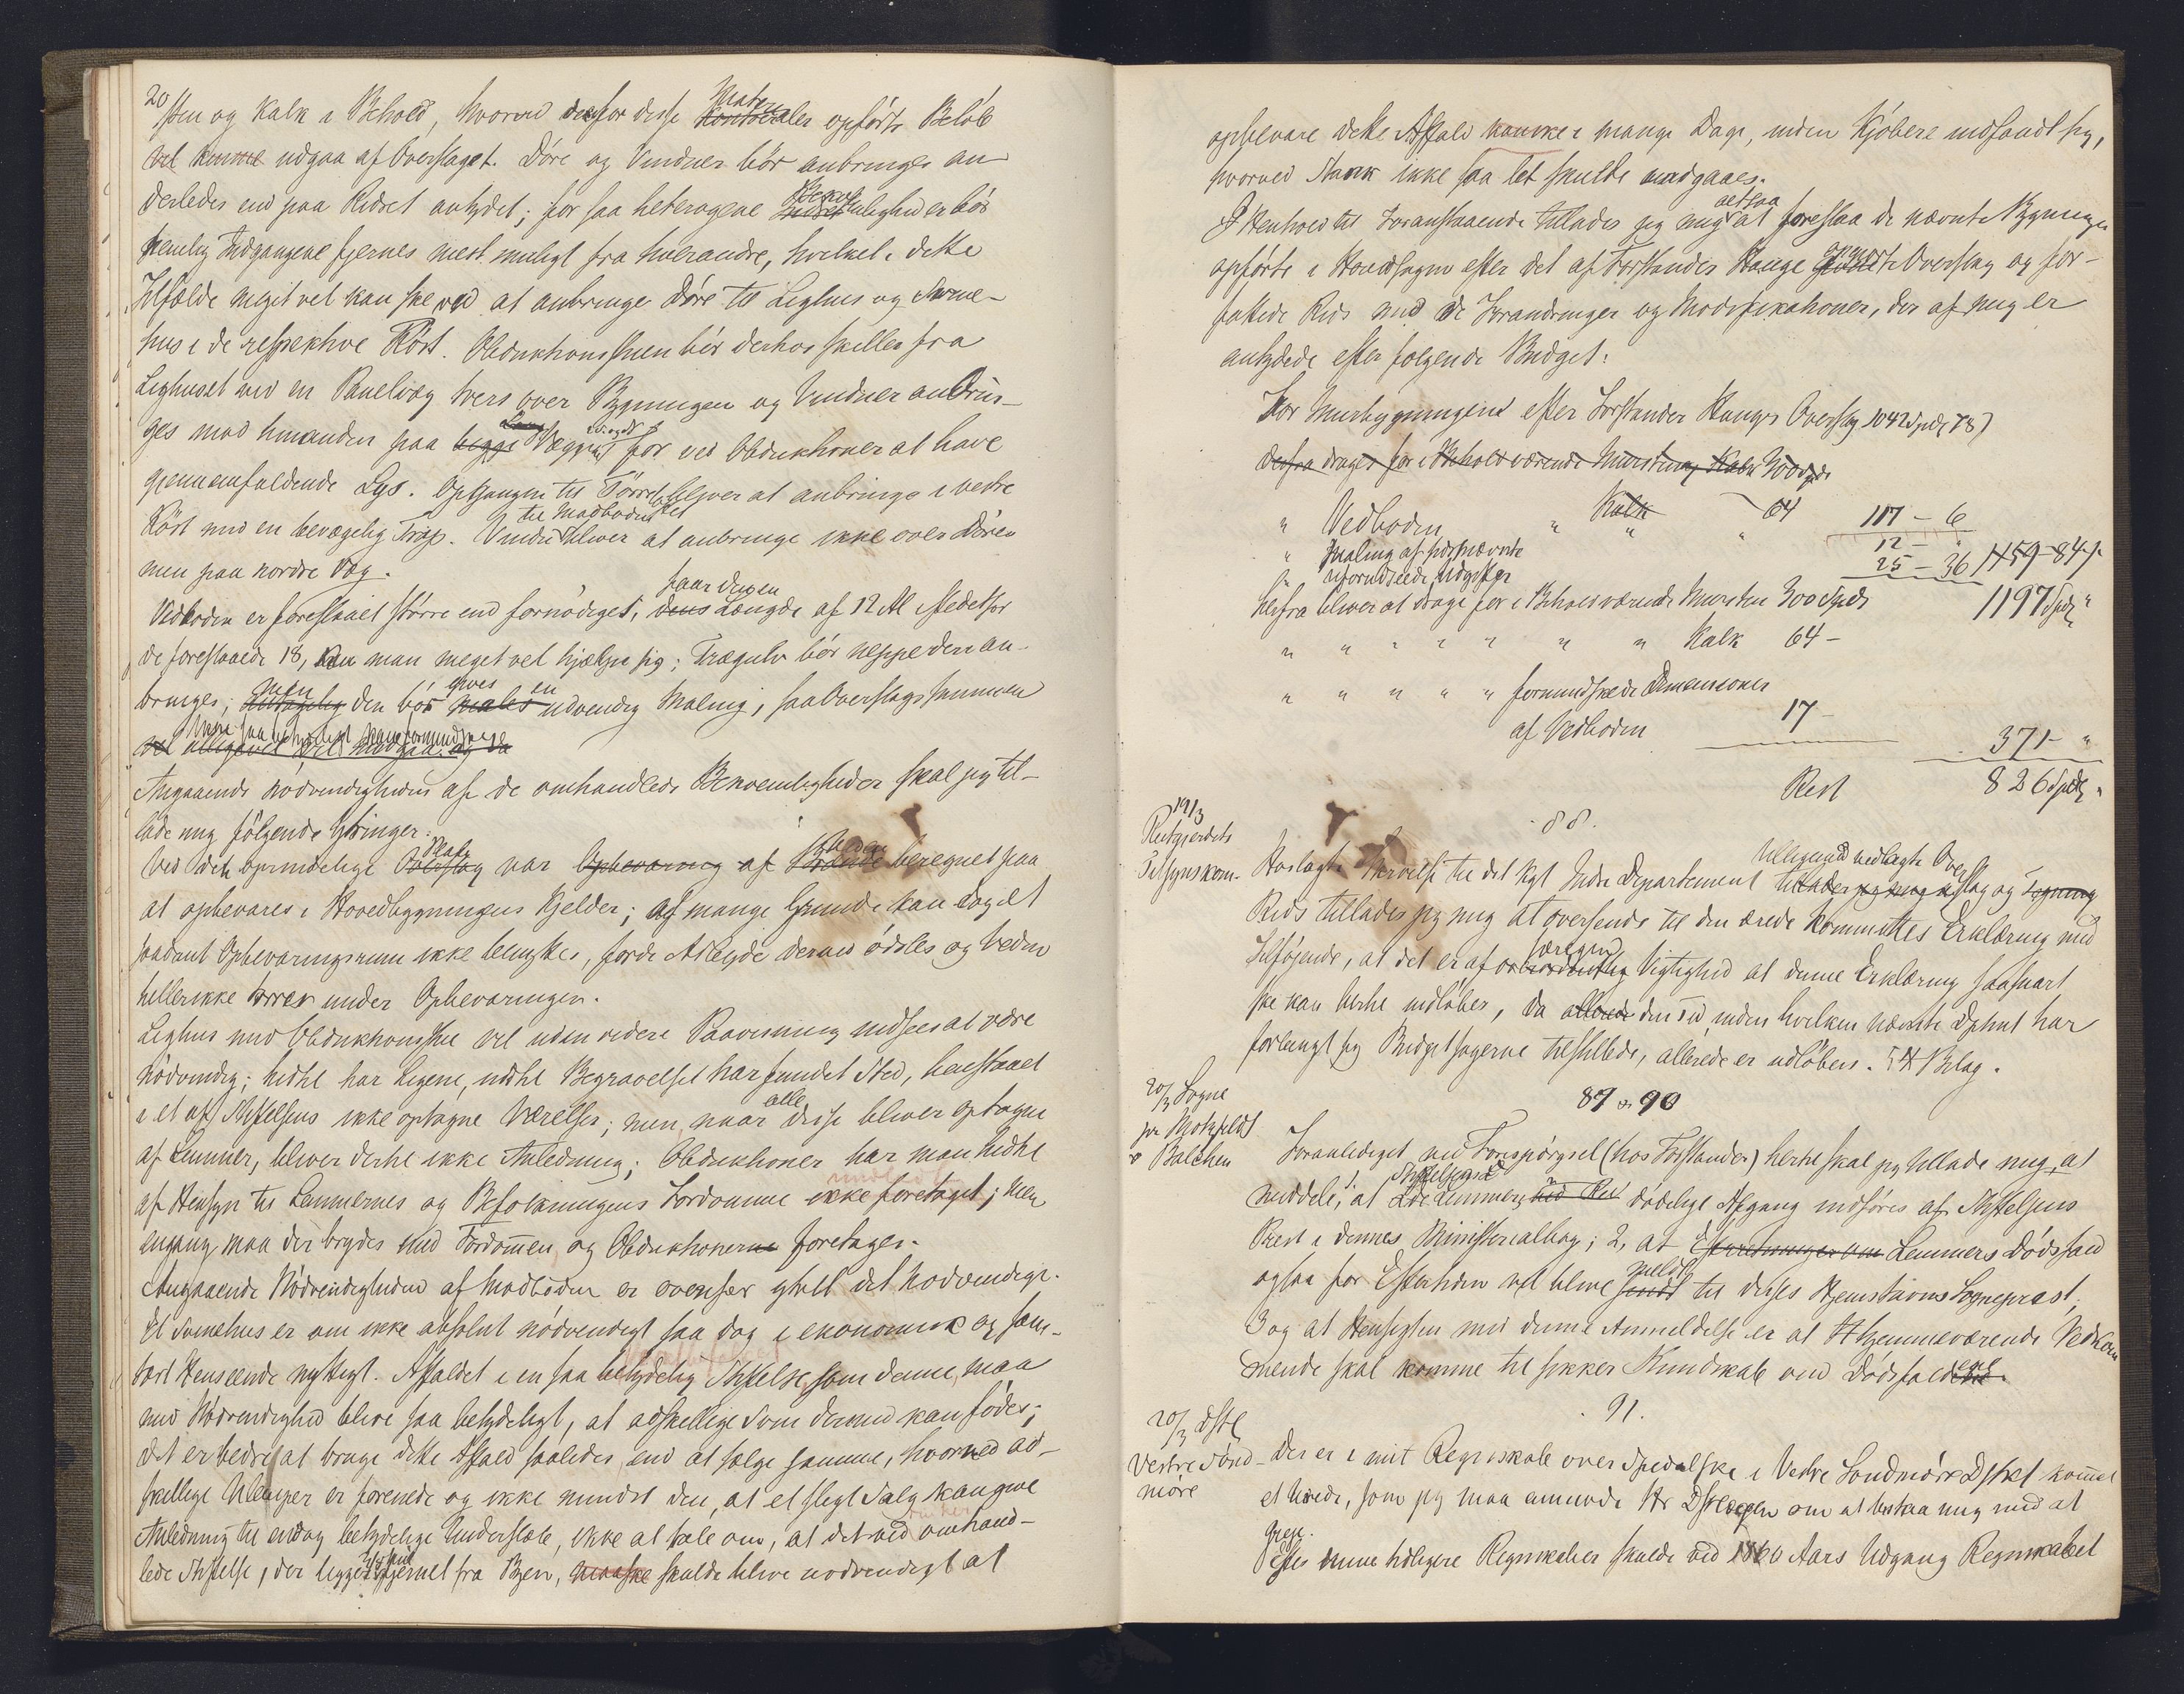 20
sten og Kalk i Behold, hvorved det for disse Materialer opførte Beløb
vel kunne udgaa af Overslaget. Døre og Vinduer bør anbringes an-
derledes end paa Ridset antydet; for saa heterogene Bekvemmeligheder bør
nemlig Indgangene fjernes mest muligt fra hverandre, hvilket i dette
Tilfælde meget vel kan ske ved at anbringe Døre til Lighus og Svine-
hus i de respektive Røst. Obduktionsstuen bør derhos skilles fra
Lighuset ved en Panelvæg tvers over Bygningen og Vinduer anbrin-
ges mod hinanden paa begge Langvægge for ved Obduktioner at have
gjennemfaldende Lys. Opgangen til Tørreloftet bliver at anbringe i vestre
Røst med en bevægelig Trap. Vinduet til Madboden bliver at anbringe ikke over Døren
men paa nordre Væg.
Vedboden er foreslaaet større end fornødiges, paa Længde af 12 Al istedetfor
de foreslaaede 18, kan man meget vel hjælpe sig; Trægulv bør neppe deri an-
bringes; men den bør gives en udvendig Maling, saa Overslagssummen
Angaaende Nødvendigheden af de omhandlede Bekvemmeligheder skal jeg til-
lade mig følgende Ytringer:
Ved det oprindelige Overslag var Opbevaring af Brænde beregnet paa
at opbevares i Hovedbygningens Kjelder; af mange Grunde kan dog et
saadant Opbevaringsrum ikke benyttes, fordi Arbeide derved ødsles og Veden
hellerikke tørres under Opbevaringen.
Lighus med Obduktionsstue vil uden videre Paavisning indsees at være
nødvendig; hidtil har Ligene, indtil Begravelsen har fundet Sted, henstaaet
i et af Stiftelsens ikke optagne Værelser; men, naar alle disse bliver optagne
af Lemmer, bliver dertil ikke Anledning; Obduktioner har man hidtil
af Hensyn til Lemmernes og Befolkningens Fordomme ikke foretaget; men
engang maa der brydes med Fordommen og Obduktionerne foretages.
Angaaende Nødvendigheden af Madboden er ovenfor ytret det Nødvendige.
Et Svinehus er om ikke absolut nødvendigt saa dog i ekonomisk og sani-
tært Henseende nyttigt. Affaldet i en saa betydelig Stiftelse som denne, maa
med Nødvendighed blive saa betydeligt, at adskillige Svin dermed kan fødes;
det er bedre at bruge dette Affald saaledes, end at sælge samme, hvorved ad-
skillige Ulemper er forenede og ikke mindst den, at et sligt Salg kan give
Anledning til endog betydelige Underslæb, ikke at tale om, at det ved omhand-
lede Stiftelse, der ligger 3/4 Mil fjernet fra Byen, maaske skulde blive nødvendigt at
opbevare dette Affald kanske i mange Dage, inden Kjøbere indfandt sig,
hvorved Stank ikke saa let skulde undgaaes.
I Henhold til Foranstaaende tillades jeg mig altsaa at foreslaa de nævnte Bygninger
opførte i Hovedsagen efter det af Forstander Hauge Overslag og for-
fattede Rids med de Forandringer og Modifikationer, der af mig er
antydede efter følgende Budget:
For Murbygningen efter Forstander Hauges Overslag 1042 Spdl 78)
Derfra drages for i Behold værende Mursten og Kalk 300 Spdl
" Vedboden " Kalk " 64 117 - 6
" Maling afførstnævnte 12 -
" uforudseede Udgifter 25 - 36 1459-84
Herfra bliver at drage for i Behold værende Mursten 300 Spdl 1197 Spdl "
" " " " " " " Kalk 64 -
" " " " " formindskede Dimensioner
af Vedboden 17 -
371 - "
Rest 826 Spdl "
88.
19/3
Reitgjerdets
Tilsynskom-
Hoslagte Skrivelse til det Kgl Indre Departement tilligemed vedlagte Overslag og Tegning
Rids tillades jeg mig at oversende til den ærede Kommittes Erklæring med
Tilføjende, at det er af særegen Vigtighed at denne Erklæring saasnart
ske kan hertil indløber, da allerede den Tid, inden hvilken nævnte Dptmt har
forlangt sig Budgetsagerne tilstillede, allerede er udløben. 4 Bilag.
89 & 90
20/3 Sogne
pr Motzfeldt
& Balchen
Foranlediget ved Forespørgsel (hos Forstander) hertil skal jeg tillade mig at
meddele, 1, at Stiftelsens Lemmers ved Død dødelige Afgang indføres af Stiftelsens
Præst i dennes Ministerialbog; 2, at Efterretninger om Lemmers Dødsfald
ogsaa for Eftertiden vil blive meldt til disses Hjemstavns Sogneprest;
3 og at Hensigten med denne Anmeldelse er at Hjemmeværende Vedkom-
mende skal komme til sikker Kundskab om Dødsfaldene.
91.
20/3 Dstl
Vestre Sønd-
møre
Der er i mit Regnskab over Spedalske i Vestre Søndmøre Dstkt kommet
et Urede, som jeg maa anmode Hr Dstlægen om at bistaa mig med at
greje.
Efter denne tidligere Regnskaber skulde ved 1860 Aars Udgang Regnskabet